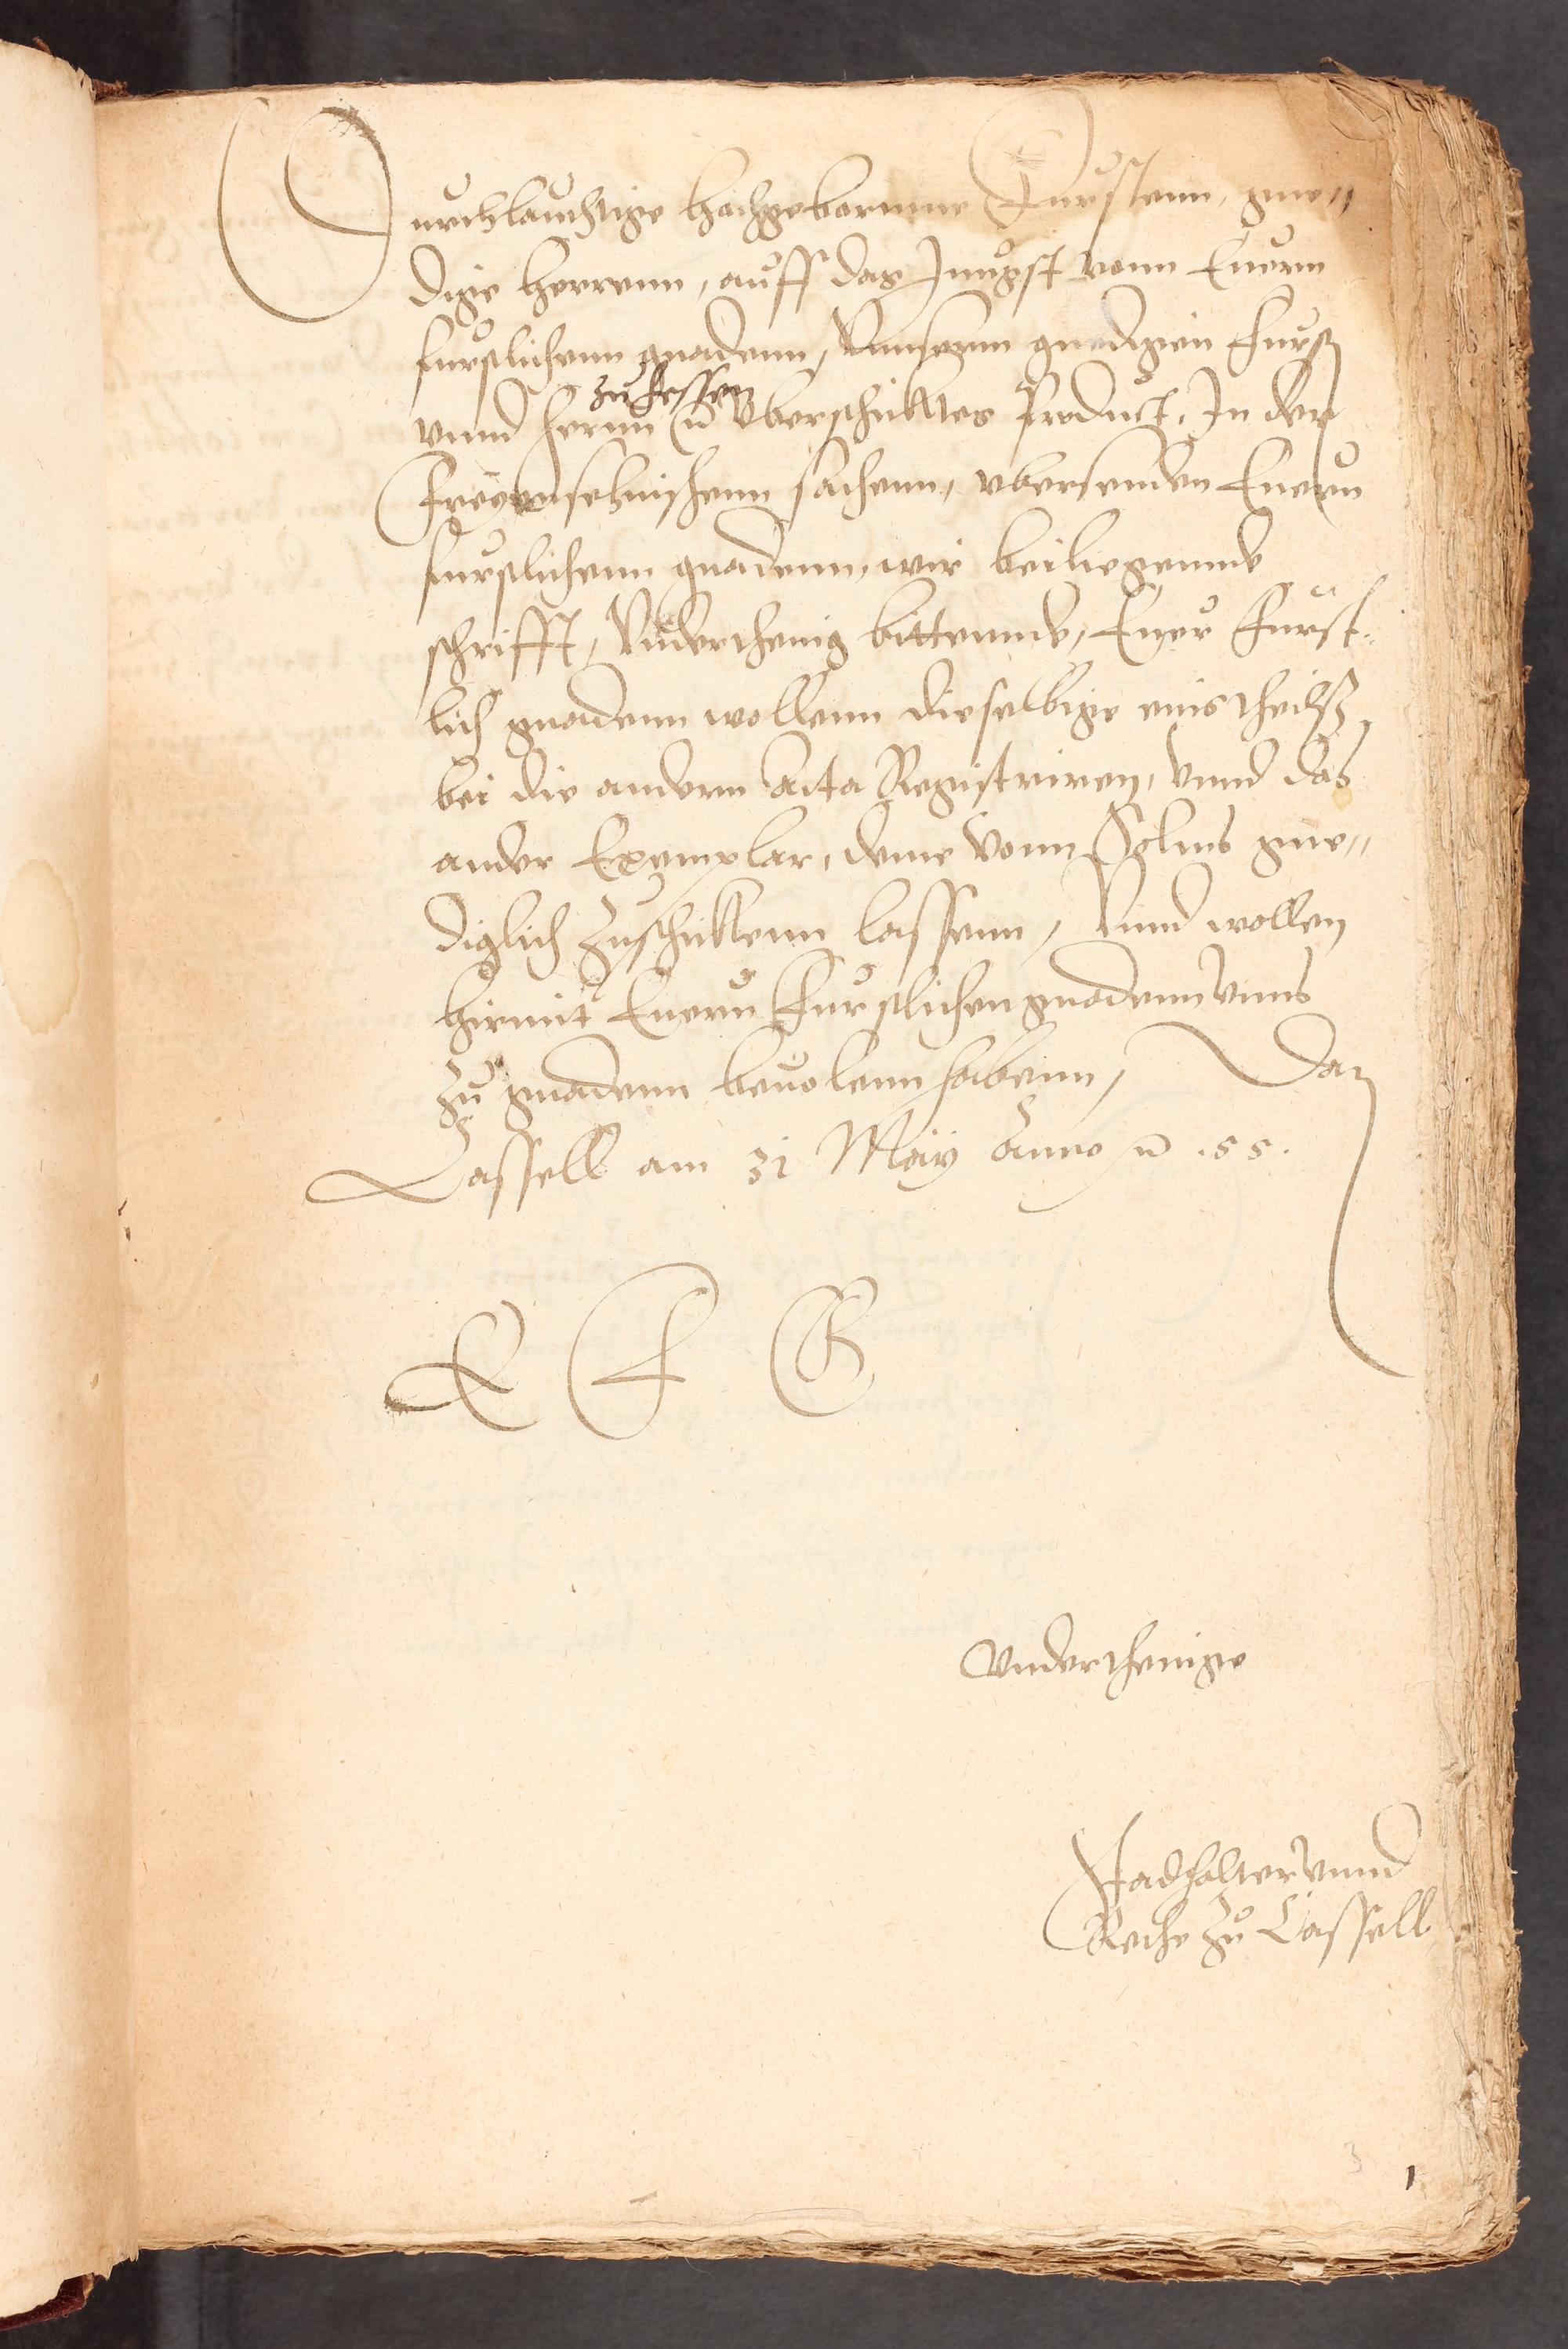 Durchlauchtige hochgebornne Furstenn, gne„
dige herrenn, auff das Jungst vonn Euern
furstlichenn gnadenn, Vnnserm gnedigen Furst
zu hessen
vnnd hernn ꝛc vberschicktes Product, In der
Freyenselnischenn sachenn, vbersenden Euern
furstlichenn gnadenn, wir beiliegennde
schrifft, Vnderthenig bittennde, Euer Furst„
lich gnadenn wollenn dieselbige eins theilß
bei die andern Acta Registriren, vnnd das
ander Exemplar, deme Vonn Solms gne„
diglich Zuschickenn lassenn, Vnnd wollen
hirmit Euern Furstlichen gnadenn Vnns
Zu gnadenn beuolenn habenn, Dat
Cassell am 31 May Anno ꝛc .55.
E F G
Vnderthenige
Stadhalter vnnd
Rethe Zu Cassell
3 1